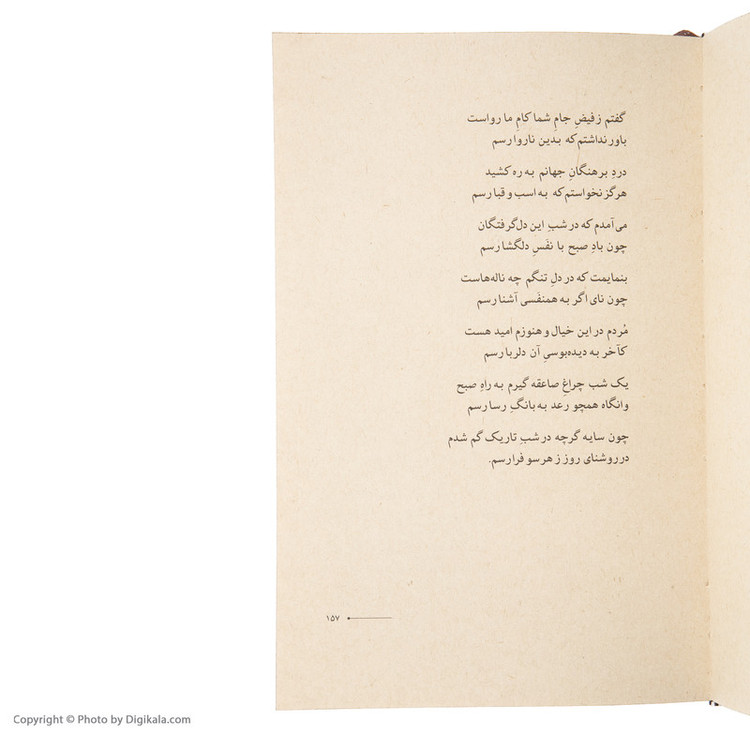 گفتم ز فیضِ جامِ شما کامِ ما رواست
باور نداشتم که بدین ناروا رسم
دردِ برهنگانِ جهانم به ره کشید
هرگز نخواستم که به اسب و قبا رسم
می‌آمدم که در شبِ این دل‌گرفتگان
چون بادِ صبح با نفَسِ دلگشا رسم
بنمایمت که در دلِ تنگم چه ناله‌هاست
چون نای اگر به همنفَسی آشنا رسم
مُردم در این خیال و هنوزم امید هست
کآخر به دیده‌بوسیِ آن دلربا رسم
یک شب چراغِ صاعقه گیرم به راهِ صبح
وانگاه همچو رعد به بانگِ رسا رسم
چون سایه گرچه در شبِ تاریک گم شدم
در روشنای روز ز هر سو فرا رسم.
۱۵۷
Copyright © Photo by Digikala.com